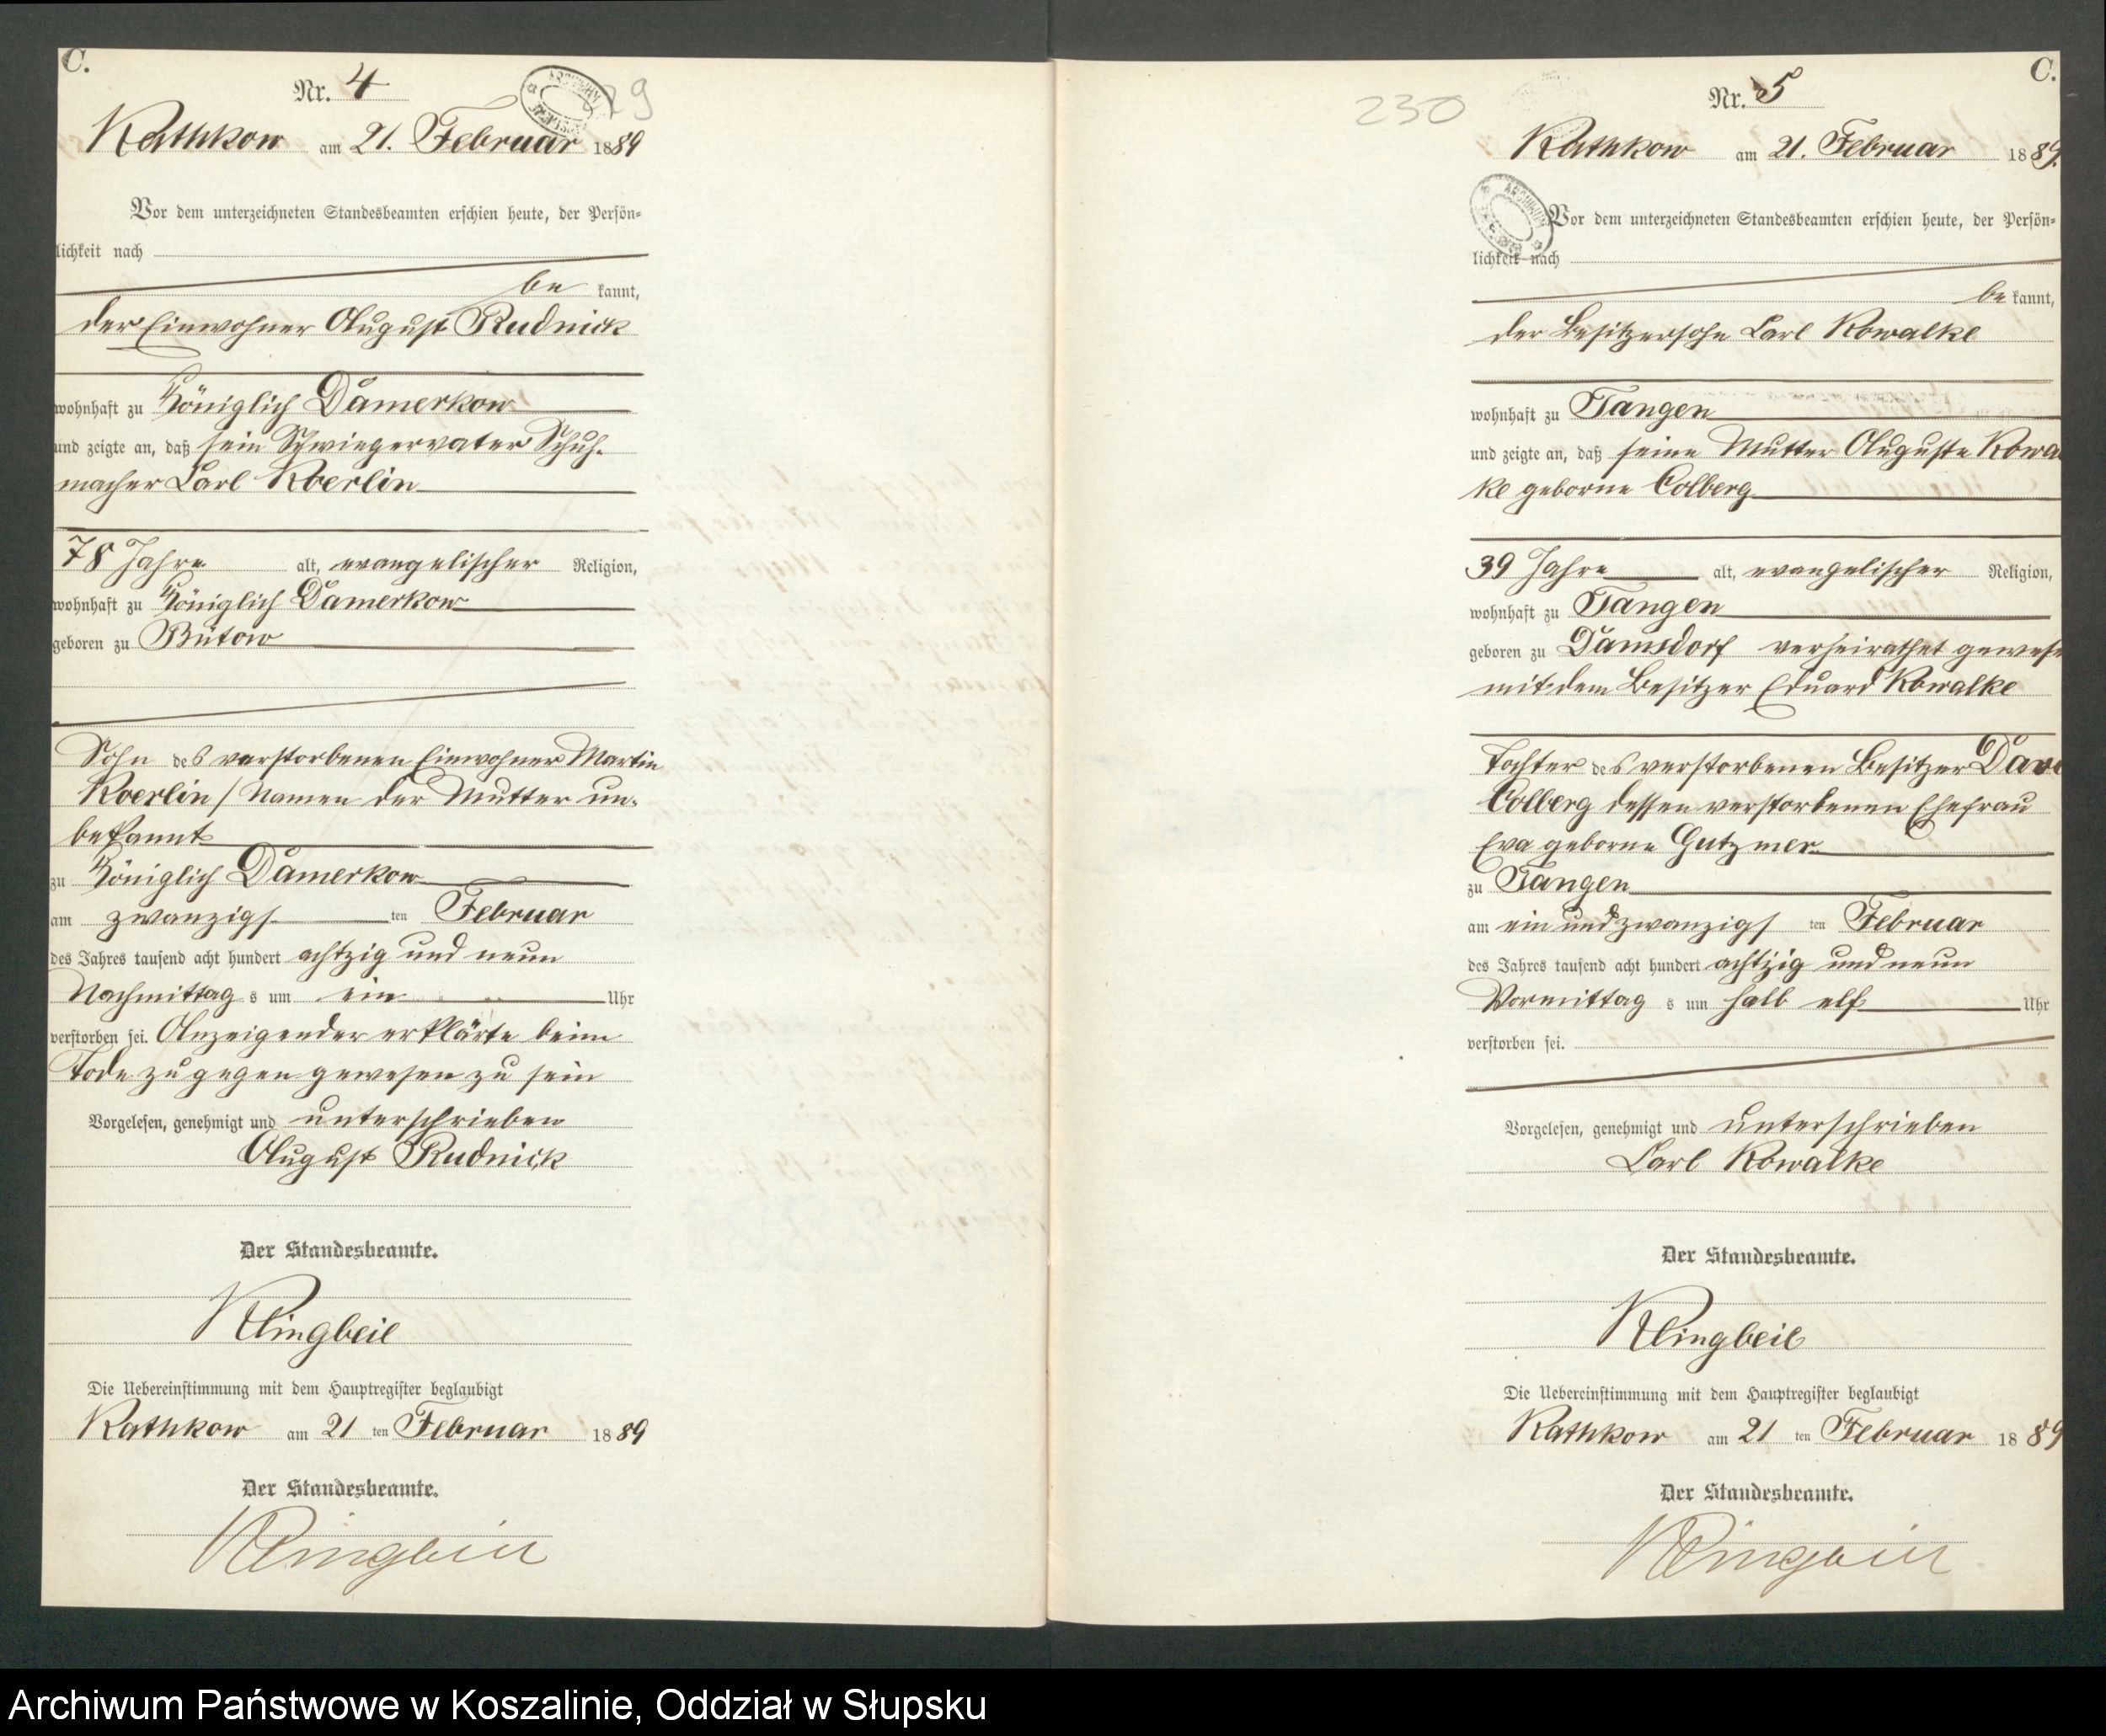 C.
Nr. 4
Rathkow am 21. Februar 1889
Vor dem unterzeichneten Standesbeamten erschien heute, der Persön-
lichkeit nach
be kannt,
der Einwohner August Rudnick
wohnhaft zu Königlich Damerkow
und zeigte an, daß sein Schwiegervater Schuh-
macher Carl Koerlin
78 Jahre alt, evangelischer Religion,
wohnhaft zu Königlich Damerkow
geboren zu Bütow
Sohn des verstorbenen Einwohner Martin
Koerlin / Namen der Mutter un-
bekannt
zu Königlich Damerkow
am zwanzigsten Februar
des Jahres tausend acht hundert achtzig und neun
Nachmittags um ein Uhr
verstorben sei. Anzeigender erklärte beim
Tode zugegen gewesen zu sein
Vorgelesen, genehmigt und unterschrieben
August Rudnick
Der Standesbeamte.
Klingbeil
Die Uebereinstimmung mit dem Hauptregister beglaubigt
Rathkow am 21 ten Februar 1889
Der Standesbeamte.
Klingbeil
230
C.
Nr. 5
Rathkow am 21. Februar 1889.
Vor dem unterzeichneten Standesbeamten erschien heute, der Persön-
lichkeit nach
be kannt,
der Besitzersohn Carl Kowalke
wohnhaft zu Tangen
und zeigte an, daß seine Mutter Auguste Kowa
ke geborne Colberg
39 Jahre alt, evangelischer Religion,
wohnhaft zu Tangen
geboren zu Damsdorf verheirathet gewese
mit dem Besitzer Eduard Kowalke
Tochter des verstorbenen Besitzer Davi
Colberg dessen verstorbenen Ehefrau
Eva geborne Gutzmer
zu Tangen
am ein und zwanzigsten Februar
des Jahres tausend acht hundert achtzig und neun
Vormittags um halb elf Uhr
verstorben sei.
Vorgelesen, genehmigt und unterschrieben
Carl Kowalke
Der Standesbeamte.
Klingbeil
Die Uebereinstimmung mit dem Hauptregister beglaubigt
Rathkow am 21 ten Februar 1889
Der Standesbeamte.
Klingbeil
Archiwum Państwowe w Koszalinie, Oddział w Słupsku